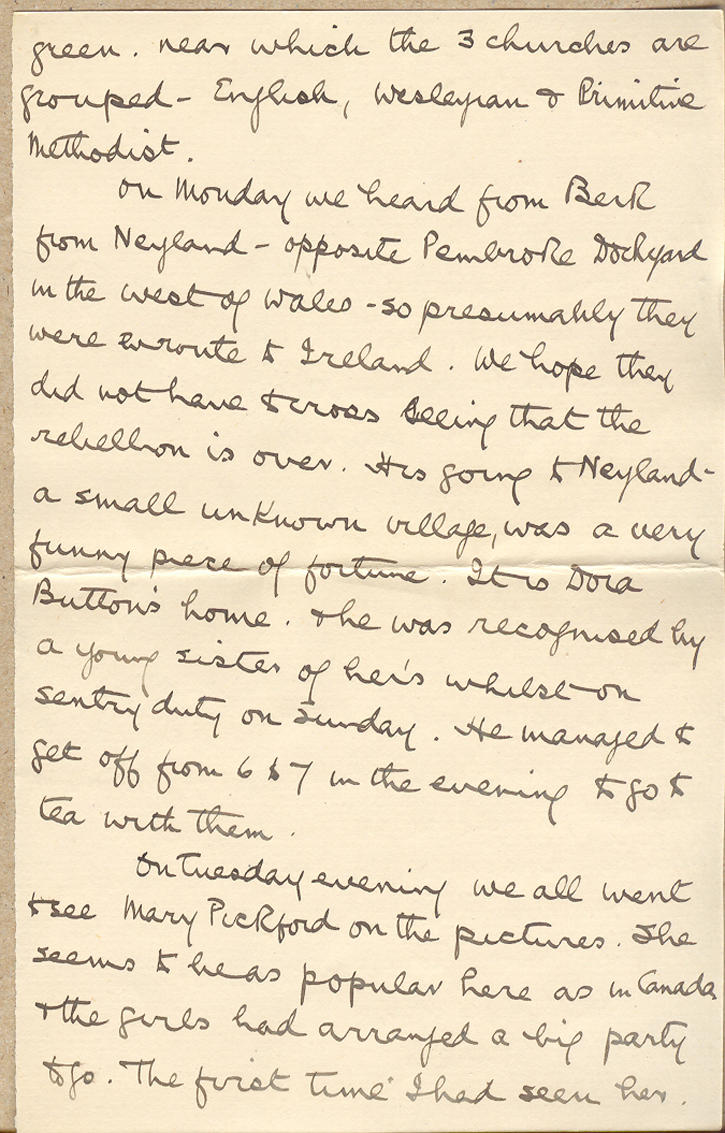 green. near which the 3 churches are
grouped - English, Wesleyan & Primitive
Methodist.
On Monday we heard from Bert
from Neyland - opposite Pembroke Dockyard
in the west of Wales - so presumably they
were enroute to Ireland. We hope they
did not have to cross seeing that the
rebellion is over. His going to Neyland -
a small unknown village, was a very
funny piece of fortune. It is Dora
Button's home. & he was recognised by
a young sister of her's whilst on
sentry duty on Sunday. He managed to
get off from 6 to 7 in the evening to go to
tea with them.
On Tuesday evening we all went
to see Mary Pickford on the pictures. She
seems to be as popular here as in Canada
& the girls had arranged a big party
to go. The first time I had seen her.